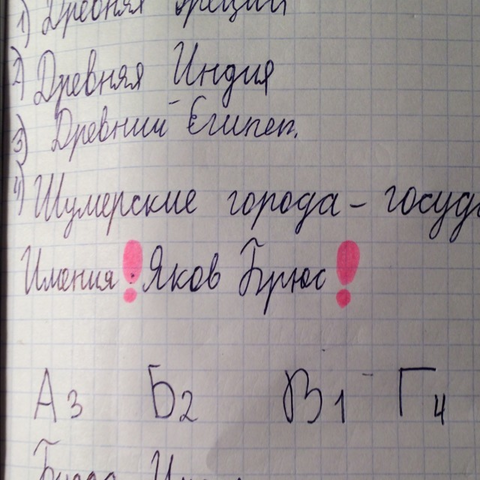 1) Древняя
2) Древняя Индия
3) Древний Египет.
4) Шумерские города - госуд
Имения! Яков Брюс!
А3 Б2 В1 Г4